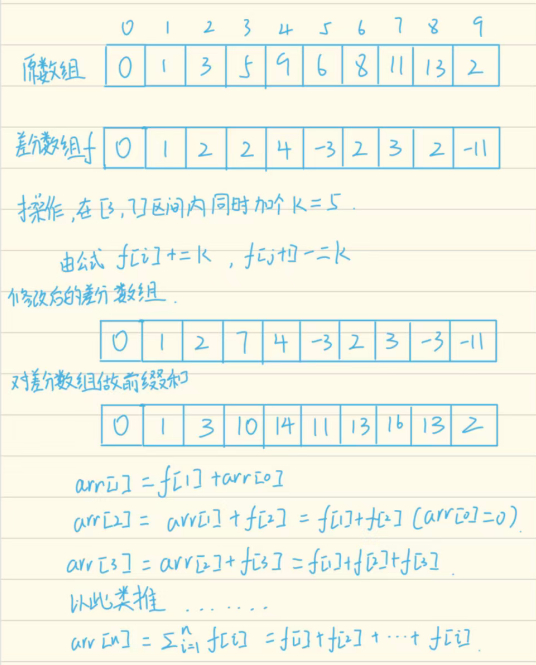 0 1 2 3 4 5 6 7 8 9
原数组 0 1 3 5 9 6 8 11 13 2
差分数组f 0 1 2 2 4 -3 2 3 2 -11
操作,在[3,7]区间内同时加个K=5.
由公式 f[i]+=K , f[j+1]-=K
修改后的差分数组.
0 1 2 7 4 -3 2 3 -3 -11
对差分数组做前缀和
0 1 3 10 14 11 13 16 13 2
arr[1] = f[1] + arr[0]
arr[2] = arr[1] + f[2] = f[1]+f[2] (arr[0]=0).
arr[3] = arr[2] + f[3] = f[1]+f[2]+f[3].
以此类推 .......
arr[n] = Σⁿᵢ₌₁ f[i] = f[1]+f[2]+...+f[i].